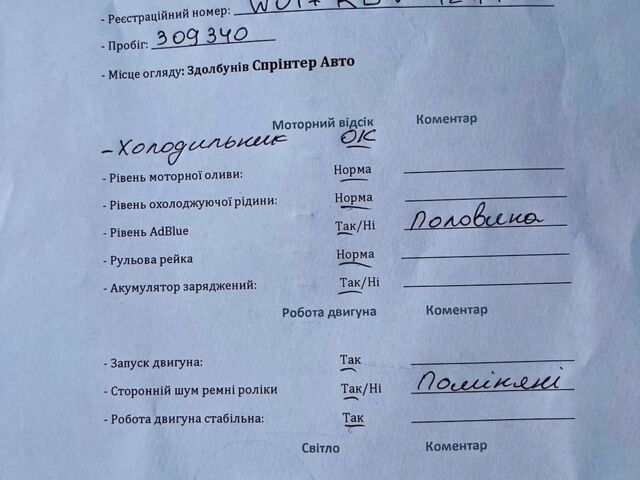 - Реєстраційний номер:
- Пробіг: 309340
- Місце огляду: Здолбунів Спрінтер Авто
Моторний відсік Коментар
- Холодильник ОК
- Рівень моторної оливи: Норма
- Рівень охолоджуючої рідини: Норма
- Рівень AdBlue Так/Ні Половина
- Рульова рейка Норма
- Акумулятор заряджений: Так/Ні
Робота двигуна Коментар
- Запуск двигуна: Так
- Сторонній шум ремні роліки Так/Ні Поміняні
- Робота двигуна стабільна: Так
Світло Коментар